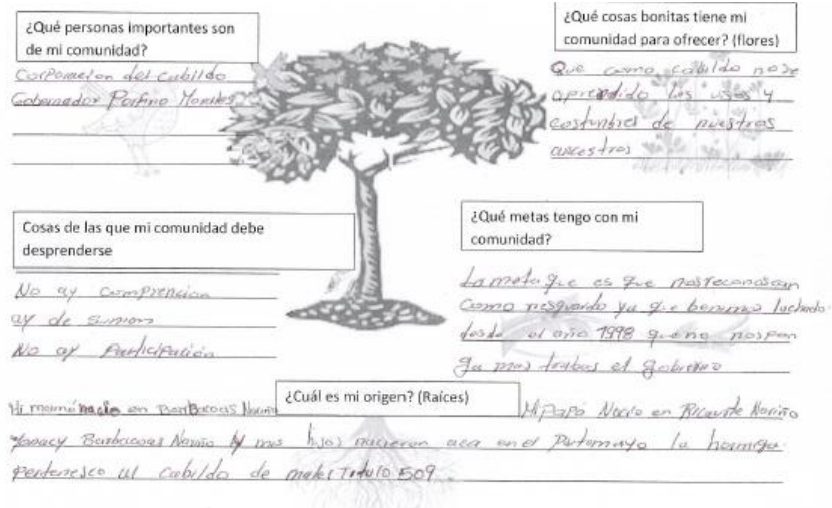 ¿Qué personas importantes son
de mi comunidad?
Corporacion del Cabildo
Gobernador Porfirio Morales
¿Qué cosas bonitas tiene mi
comunidad para ofrecer? (flores)
Que como cabildo no se
aprendido los usos y
costunbres de nuestros
ancestros
Cosas de las que mi comunidad debe
desprenderse
No ay comprencion
ay de sunion
No ay Participación
¿Qué metas tengo con mi
comunidad?
La meta que es que nos reconoscan
Como resguardo ya que benimos luchado
desde el año 1998 que no nos pon
ga mas trabas el gobierno
¿Cuál es mi origen? (Raíces)
Mi mamá nacio en Barbacoas Nariño
Mi Papá Nacio en Ricaurte Nariño
Yo nacy Barbacoas Nariño y mis hijos nacieron aca en el Putomayo la hormiga
pertenesco al Cabildo de 509